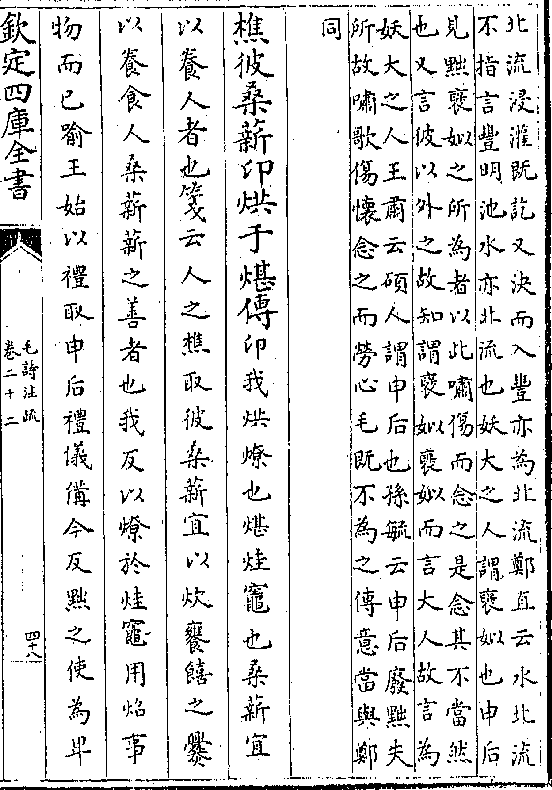 北流浸灌既訖又決而入豐亦為北流鄭直云水北流
不指言豐明池水亦北流也妖大之人謂褒姒也申后
見黜褒姒之所為者以此嘯傷而念之是念其不當然
也又言彼以外之故知謂褒姒褒姒而言大人故言為
妖大之人王肅云碩人謂申后也孫毓云申后廢黜失
所故嘯歌傷懷念之而勞心毛既不為之傳意當與鄭
同
樵彼桑薪卬烘于煁傳卬我烘燎也煁烓竈也桑薪宜
以養人者也箋云人之樵取彼桑薪宜以炊饔饎之爨
以養食人桑薪薪之善者也我反以燎於烓竈用炤事
物而已喻王始以禮取申后禮儀備今反黜之使為卑
欽定四庫全書
毛詩注疏
卷二十二
四十八